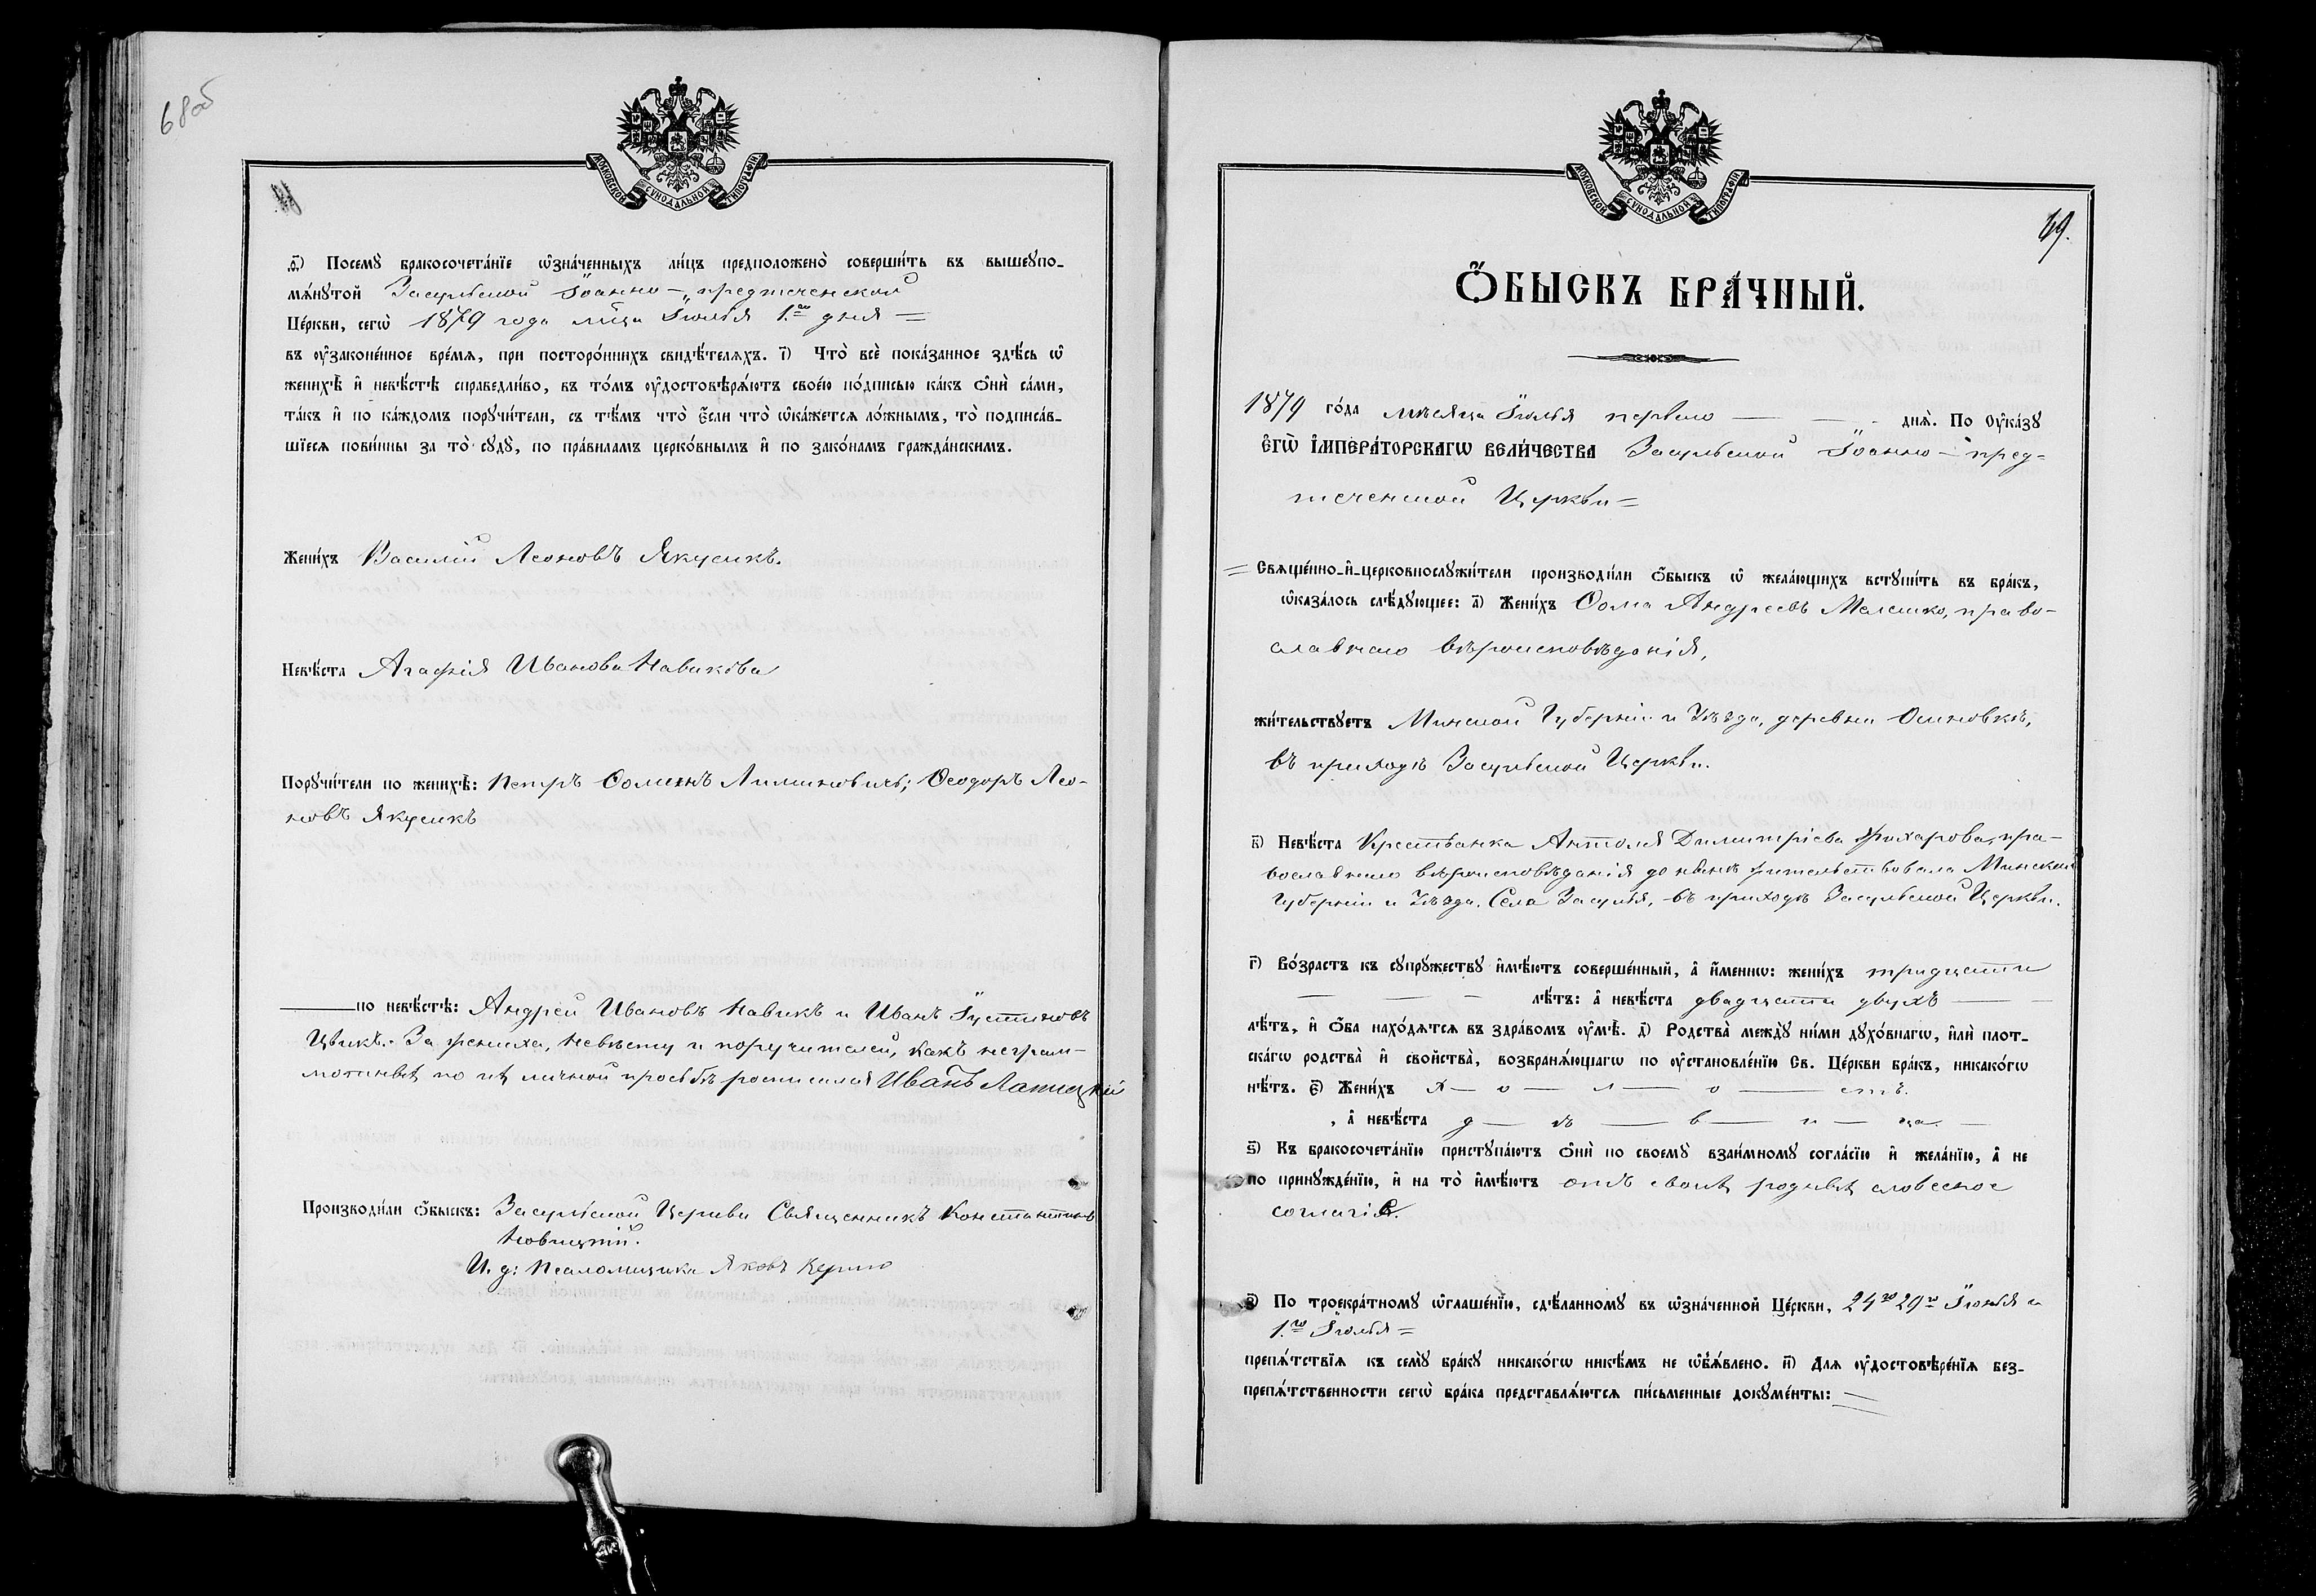 68об
МОСКОВСКОЙ СѴНОДАЛЬНОЙ ТИПОГРАФІИ
ѳ҃) Посемꙋ̀ бракосочета́нїе ѡ҆зна́ченныхъ ли́цъ предположено̀ соверши́ть въ вышеꙋпо-
мѧ́нꙋтой Засульской Іоанно-„предтеченской
Це́ркви, сегѡ̀ 1879 года м-ца Іюля 1го дня =
въ ᲂу҆законе́нное вре́мѧ, при посторо́ннихъ свидѣ́телѧхъ. і҃) Что̀ всѐ пока́занное здѣ́сь ѡ҆
женихѣ̀ и҆ невѣ́стѣ справедли́во, въ то́мъ ᲂу҆достовѣрѧ́ютъ свое́ю по́дписью ка́къ ѻ҆нѝ са́ми,
та́къ и҆ по ка́ждомъ порꙋчи́тели, съ тѣ́мъ что̀ є҆́сли что̀ ѡ҆ка́жетсѧ ло́жнымъ, то̀ подписа́в-
шїесѧ пови́нны за то̀ сꙋдꙋ̀, по пра́виламъ церко́внымъ и҆ по зако́намъ гражда́нскимъ.
Жени́хъ Василій Леоновъ Якусикъ.
Невѣ́ста Агафія Иванова Навикова
Порꙋчи́тели по женихѣ̀: Петръ Ѳоминъ Лиминовичъ; Ѳеодоръ Лео-
новъ Якусикъ
по невѣ́стѣ: Андрей Ивановъ Навикъ и Иванъ Іустиновъ
Цвикъ. За жениха, невѣсту и поручителей, какъ неграм-
мотныхъ по ихъ личной просьбѣ росписался Иванъ Лапицкій
Производи́ли ѻ҆́быскъ: Засульской Церкви Священникъ Константинъ
Новицкій.
И. д: Псаломщика Яковъ
МОСКОВСКОЙ СѴНОДАЛЬНОЙ ТИПОГРАФІИ
69.
Ѻ҆́БЫСКЪ БРА́ЧНЫЙ.
1879 го́да мѣсяца Іюля перваго днѧ̀. По Оу҆ка́зꙋ
Є҆ГѠ̀ И҆МПЕРА́ТОРСКАГѠ ВЕЛИ́ЧЕСТВА Засульской Іоанно-пред-
теченской Церкви =
= Свѧще́нно-и҆-церковнослꙋжи́тели производи́ли ѻ҆́быскъ ѡ҆ жела́ющихъ встꙋпи́ть въ бра́къ,
ѡ҆каза́лось слѣ́дꙋющее: а҃) Жени́хъ Ѳома Андреевъ Мелешко, право-
славнаго вѣроисповѣданія,
жи́тельствꙋетъ Минской Губерніи и Уѣзда, деревни Осиновкѣ,
въ приходѣ Засульской Церкви.
в҃) Невѣ́ста Крестьянка Антоля Димитріева Жихарова, пра-
вославнаго вѣроисповѣданія до нынѣ жительствовала Минской
Губерніи и Уѣзда. Села Засулья, въ приходѣ Засульской Церкви.
г҃) Во́зрастъ къ сꙋпрꙋ́жествꙋ и҆мѣ́ютъ соверше́нный, а҆ и҆́менно: жени́хъ тридцати
лѣ́тъ: а҆ невѣ́ста двадцати двухъ
лѣ́тъ, и҆ ѻ҆́ба нахо́дѧтсѧ въ здра́вомъ ᲂу҆мѣ̀. д҃) Родства̀ междꙋ̀ ни́ми дꙋхо́внагѡ, и҆лѝ плот-
ска́гѡ родства̀ и҆ сво́йства̀, возбранѧ́ющагѡ по ᲂу҆становле́нїю Св. Це́ркви бра́къ, никако́гѡ
нѣ́тъ. є҃) Жени́хъ х — о — л — о — стъ.
, а҆ невѣ́ста д — ѣ — в — и — ца.
ѕ҃) Къ бракосочета́нїю пристꙋпа́ютъ ѻ҆нѝ по своемꙋ̀ взаи́мномꙋ согла́сїю и҆ жела́нїю, а҆ не
по принꙋжде́нїю, и҆ на то̀ и҆мѣ́ютъ отъ своихъ родныхъ словесное
согласіе.
з҃) По троекра́тномꙋ ѡ҆глаше́нїю, сдѣ́ланномꙋ въ ѡ҆зна́ченной Це́ркви, 24го 29го Іюня и
1.го Іюля =
препѧ́тствїѧ къ семꙋ̀ бра́кꙋ никако́гѡ никѣ́мъ не ѡ҆б̾ѧ́влено. и҃) Длѧ ᲂу҆достовѣре́нїѧ без-
препѧ́тственности сегѡ̀ бра́ка представлѧ́ютсѧ пи́сьменные докꙋме́нты: =